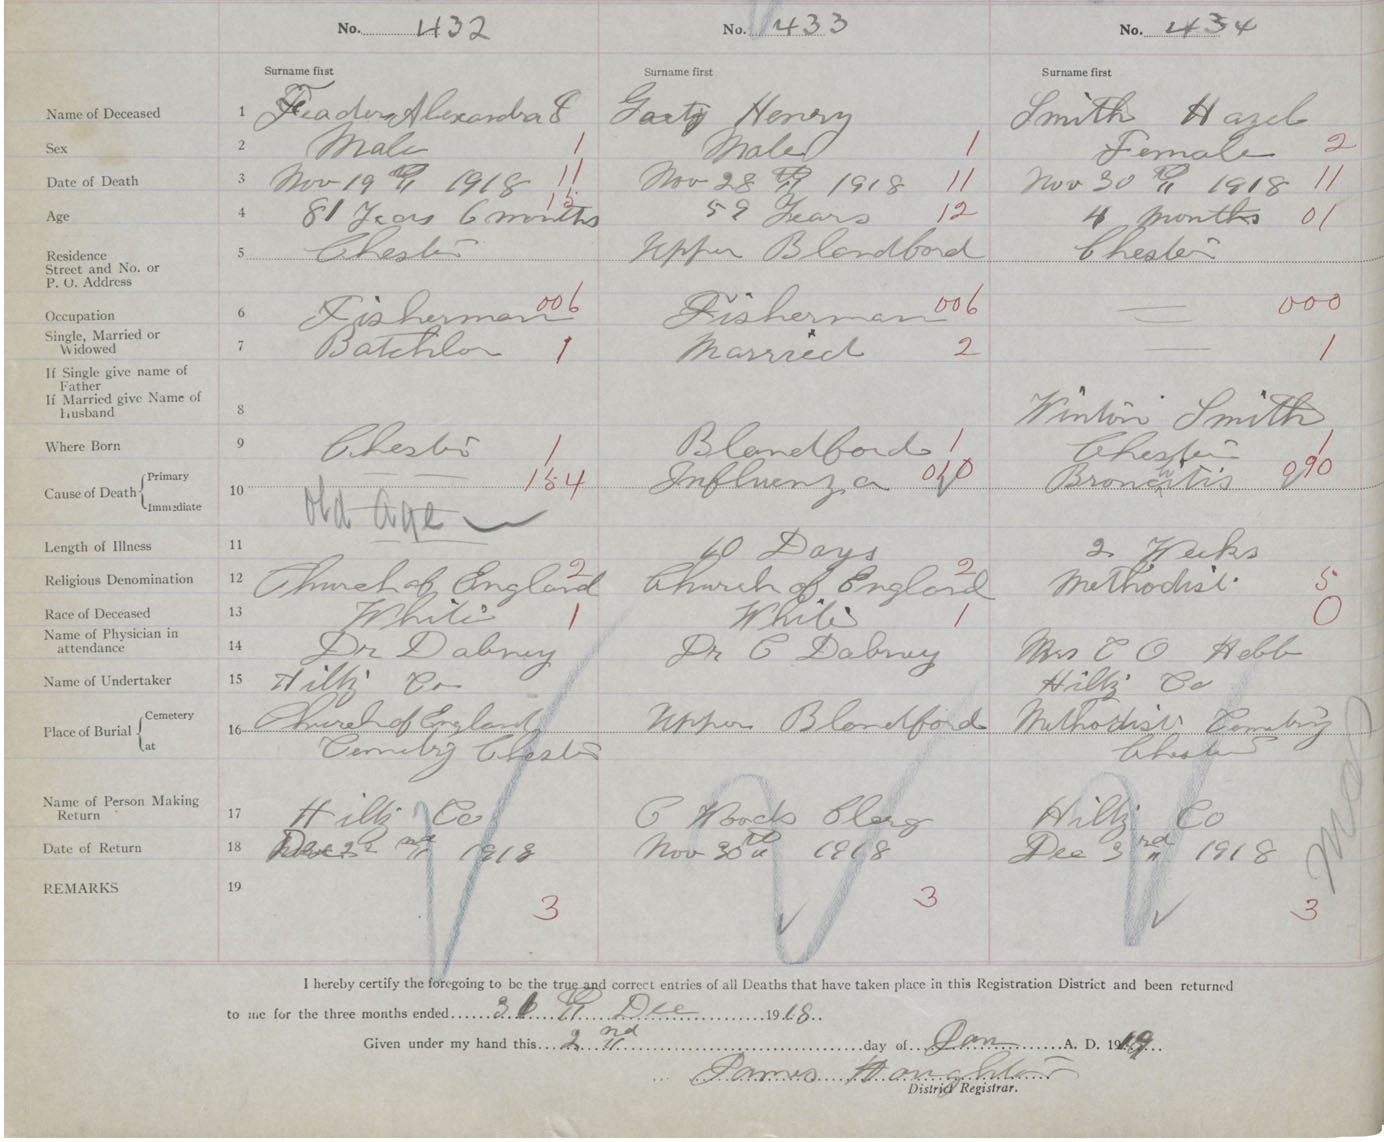 No. 432 No. 433 No. 434
Surname first Surname first Surname first
Name of Deceased 1 Feader Alexandra E Henry Smith Hazel
Sex 2 Male 1 Male 1 Female 2
Date of Death 3 Nov 19 th 1918 11 Nov 28 th 1918 11 Nov 30 th 1918 11
Age 4 81 Years 6 months 15 59 Years 12 4 months 01
Residence 5 Chester Upper Blandford Chester
Street and No. or
P. O. Address
Occupation 6 Fisherman 006 Fisherman 006 — 000
Single, Married or
Widowed 7 Batchlor 1 Married 2 — 1
If Single give name of
Father
If Married give Name of
Husband 8 Winton Smith
Where Born 9 Chester 1 Blandford 1 Chester 1
Cause of Death Primary 154 Influenza 010 Bronchitis 990
Immediate 10 Old Age
Length of Illness 11 10 Days 2 Weeks
Religious Denomination 12 Church of England 2 Church of England 2 Methodist 5
Race of Deceased 13 White 1 White 1 0
Name of Physician in
attendance 14 Dr Dabney Dr C Dabney Mrs C O Hebb
Name of Undertaker 15 Hiltz Co Hiltz Co
Place of Burial Cemetery 16 Church of England Upper Blandford Methodist Cemetry
at Cemetry Chester Chester
Name of Person Making
Return 17 Hiltz Co C Woods Clerg Hiltz Co
Date of Return 18 Dec 2 nd 1918 Nov 30 th 1918 Dec 3 rd 1918
REMARKS 19 3 3 3
I hereby certify the foregoing to be the true and correct entries of all Deaths that have taken place in this Registration District and been returned
to me for the three months ended 31 th Dec 1918.
Given under my hand this 2 nd day of Jan A. D. 1919
James Houghton
District Registrar.